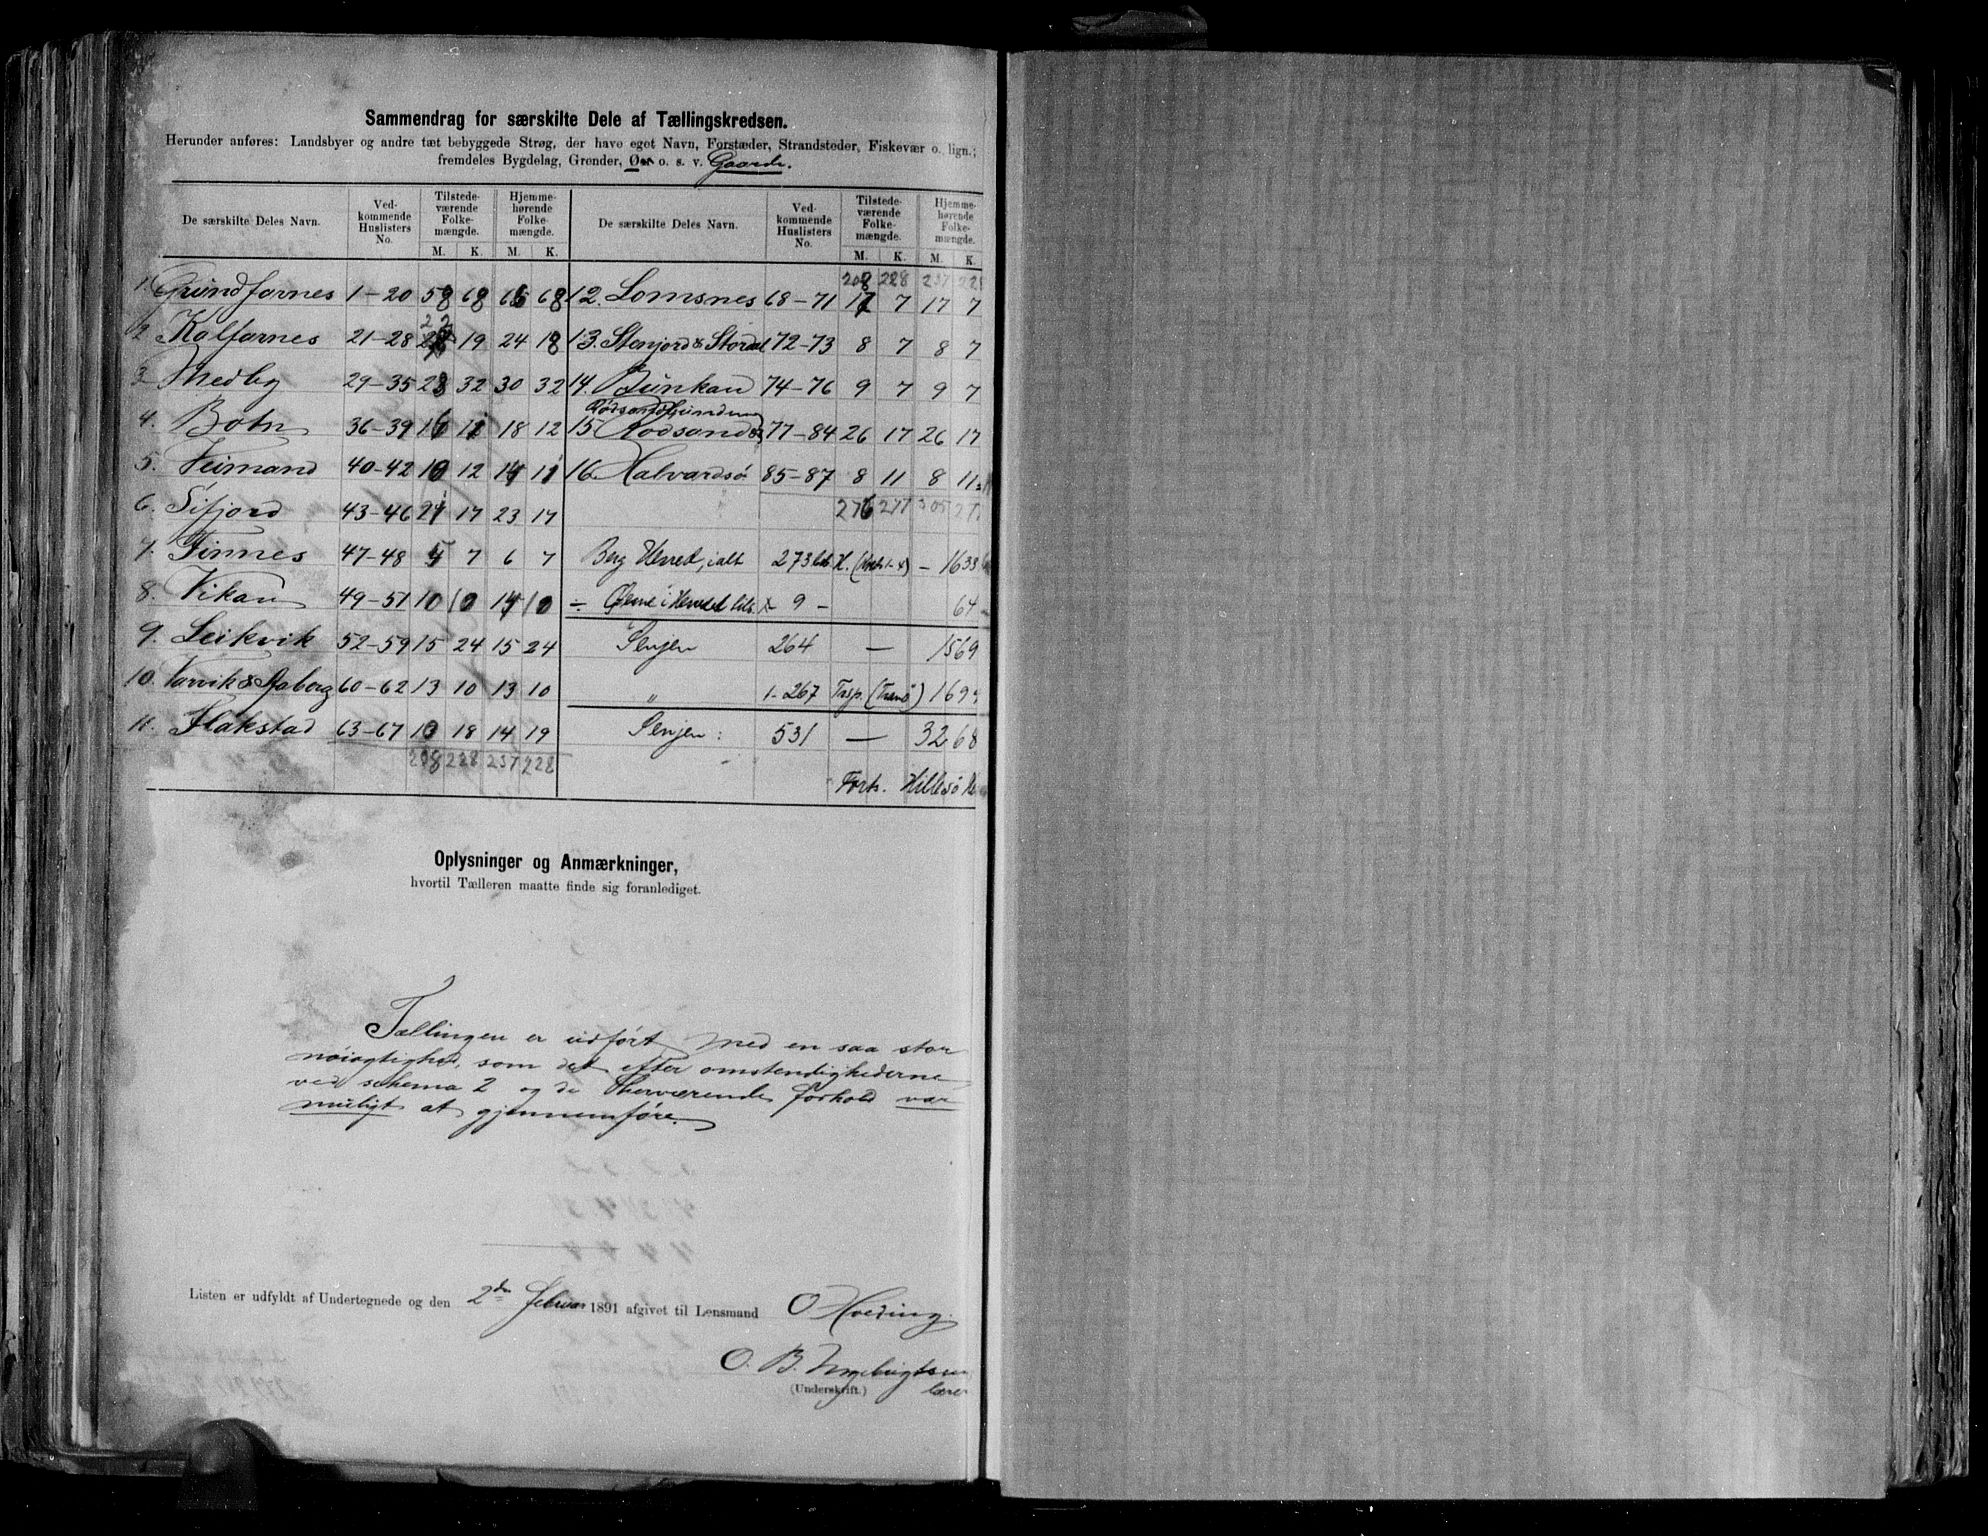 Sammendrag for særskilte Dele af Tællingskredsen.
Herunder anføres: Landsbyer og andre tæt bebyggede Strøg, der have eget Navn, Forstæder, Strandsteder, Fiskevær o. lign.;
fremdeles Bygdelag, Grender, Øer o. s. v. Gaarde.
De særskilte Deles Navn. Ved-kommende Huslisters No. Tilstede-værende Folke-mængde. M. K. Hjemme-hørende Folke-mængde. M. K.
1. Grundfarnes 1-20 58 68 65 68
2 Kalfarnes 21-28 22 19 24 18
3 Medby 29-35 28 32 30 32
4. Botn 36-39 16 11 18 12
5. Veimand 40-42 10 12 14 11
6. Sifjord 43-46 21 17 23 17
7. Finnes 47-48 5 7 6 7
8. Vikan 49-51 10 10 14 10
9. Leikvik 52-59 15 24 15 24
10. Varvik & Aaberg 60-62 13 10 13 10
11. Flakstad 63-67 10 18 14 19
208 228 237 228
De særskilte Deles Navn. Ved-kommende Huslisters No. Tilstede-værende Folke-mængde. M. K. Hjemme-hørende Folke-mængde. M. K.
208 228 237 228
12. Lomsnes 68-71 17 7 17 7
13. Stenjord & Stordal 72-73 8 7 8 7
14. Bunkan 74-76 9 7 9 7
15 Rödsand 77-84 26 17 26 17
16. Halvardsö 85-87 8 11 8 11
276 277 305 277
Berg Herred, ialt 273 H. - 1633
÷ Øerne i Herredet 9 - 64
Senjen 264 — 1569
" 1-267 Trsp. (Tranö) 1699
Senjen: 531 — 3268
Forts. Hillesö
Oplysninger og Anmærkninger,
hvortil Tælleren maatte finde sig foranlediget.
Tællingen er udført med en saa stor
nöiagtighed, som det efter omstendighederne
ved schema 2 og de herværende forhold var
muligt at gjennemföre.
Listen er udfyldt af Undertegnede og den 2den Februar 1891 afgivet til Lensmand O Hveding.
O. B. Ingebrigtsen
(Underskrift.) lærer